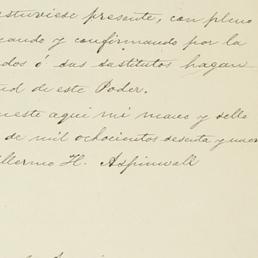 estuviese presente, con pleno
ando y confirmando por la
dos ó sus sustitutos hagan
ud de este Poder.
ueste aqui mi mano y sello
de mil ochocientos sesenta y
illermo H. Aspinwall